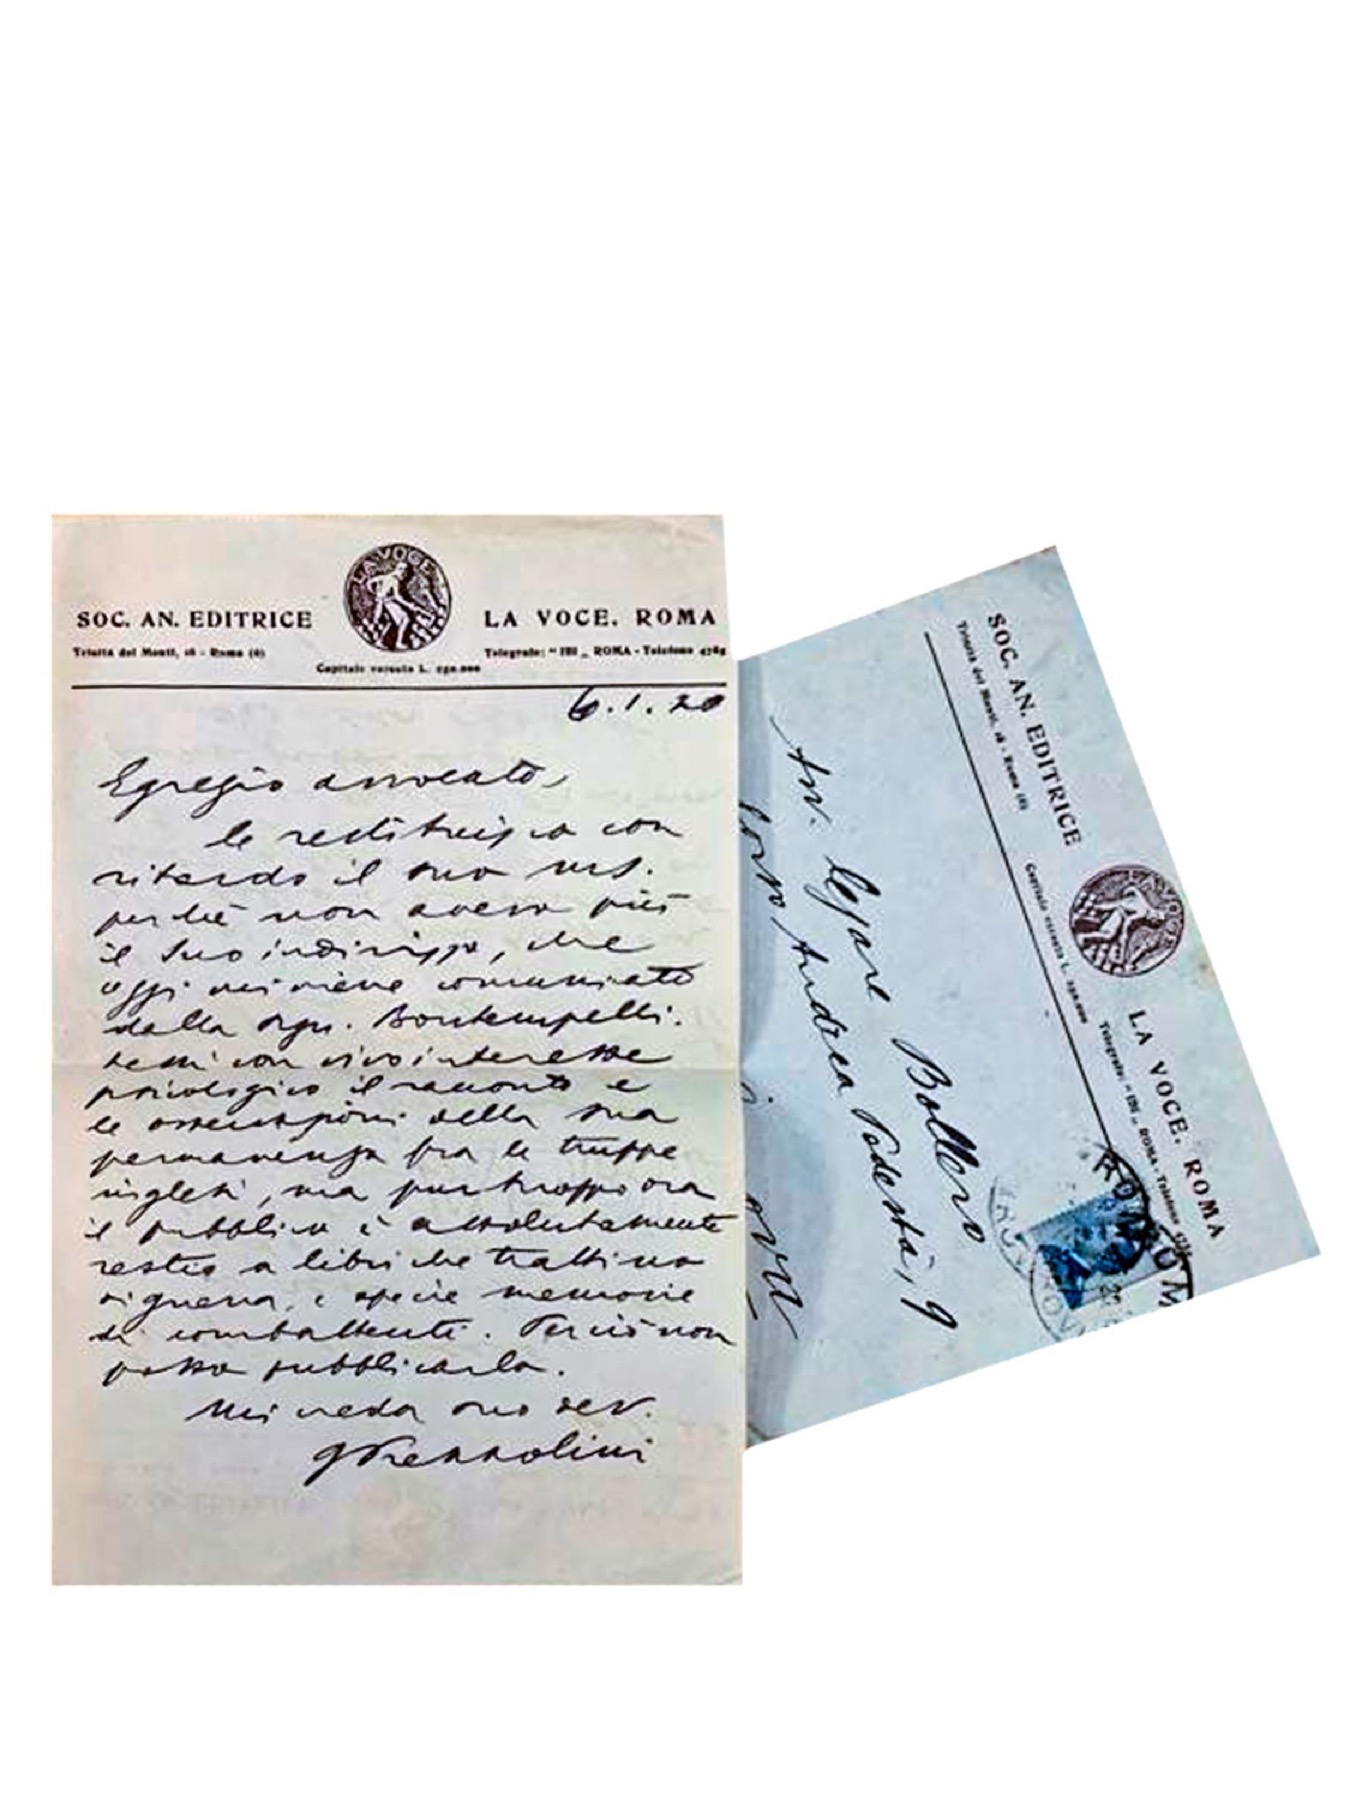 LA VOCE
SOC. AN. EDITRICE
LA VOCE. ROMA
Trinità dei Monti, 18 - Roma (6)
Telegrafo: " IBI „ ROMA - Telefono
Capitale versato L.
6.1.20
Egregio avvocato,
le restituisco con
ritardo il suo ms.
perché non avevo più
il suo indirizzo, che
oggi mi viene comunicato
dalla sign. Bontempelli.
Lessi con vivo interesse
psicologico il racconto e
le osservazioni della sua
permanenza fra le truppe
inglesi, ma purtroppo ora
il pubblico è assolutamente
restio a libri che trattino
di guerra, e specie memorie
di combattenti. Perciò non
posso pubblicarlo.
Mi creda suo dev.
GPrezzolini
SOC. AN. EDITRICE
LA VOCE
LA VOCE. ROMA
Trinità dei Monti, 18 - Roma (6)
Capitale versato L.
Telegrafo: " IBI „ ROMA - Telefono
Avv. Cesare Bollero
Corso Andrea Podestà, 9
ROMA